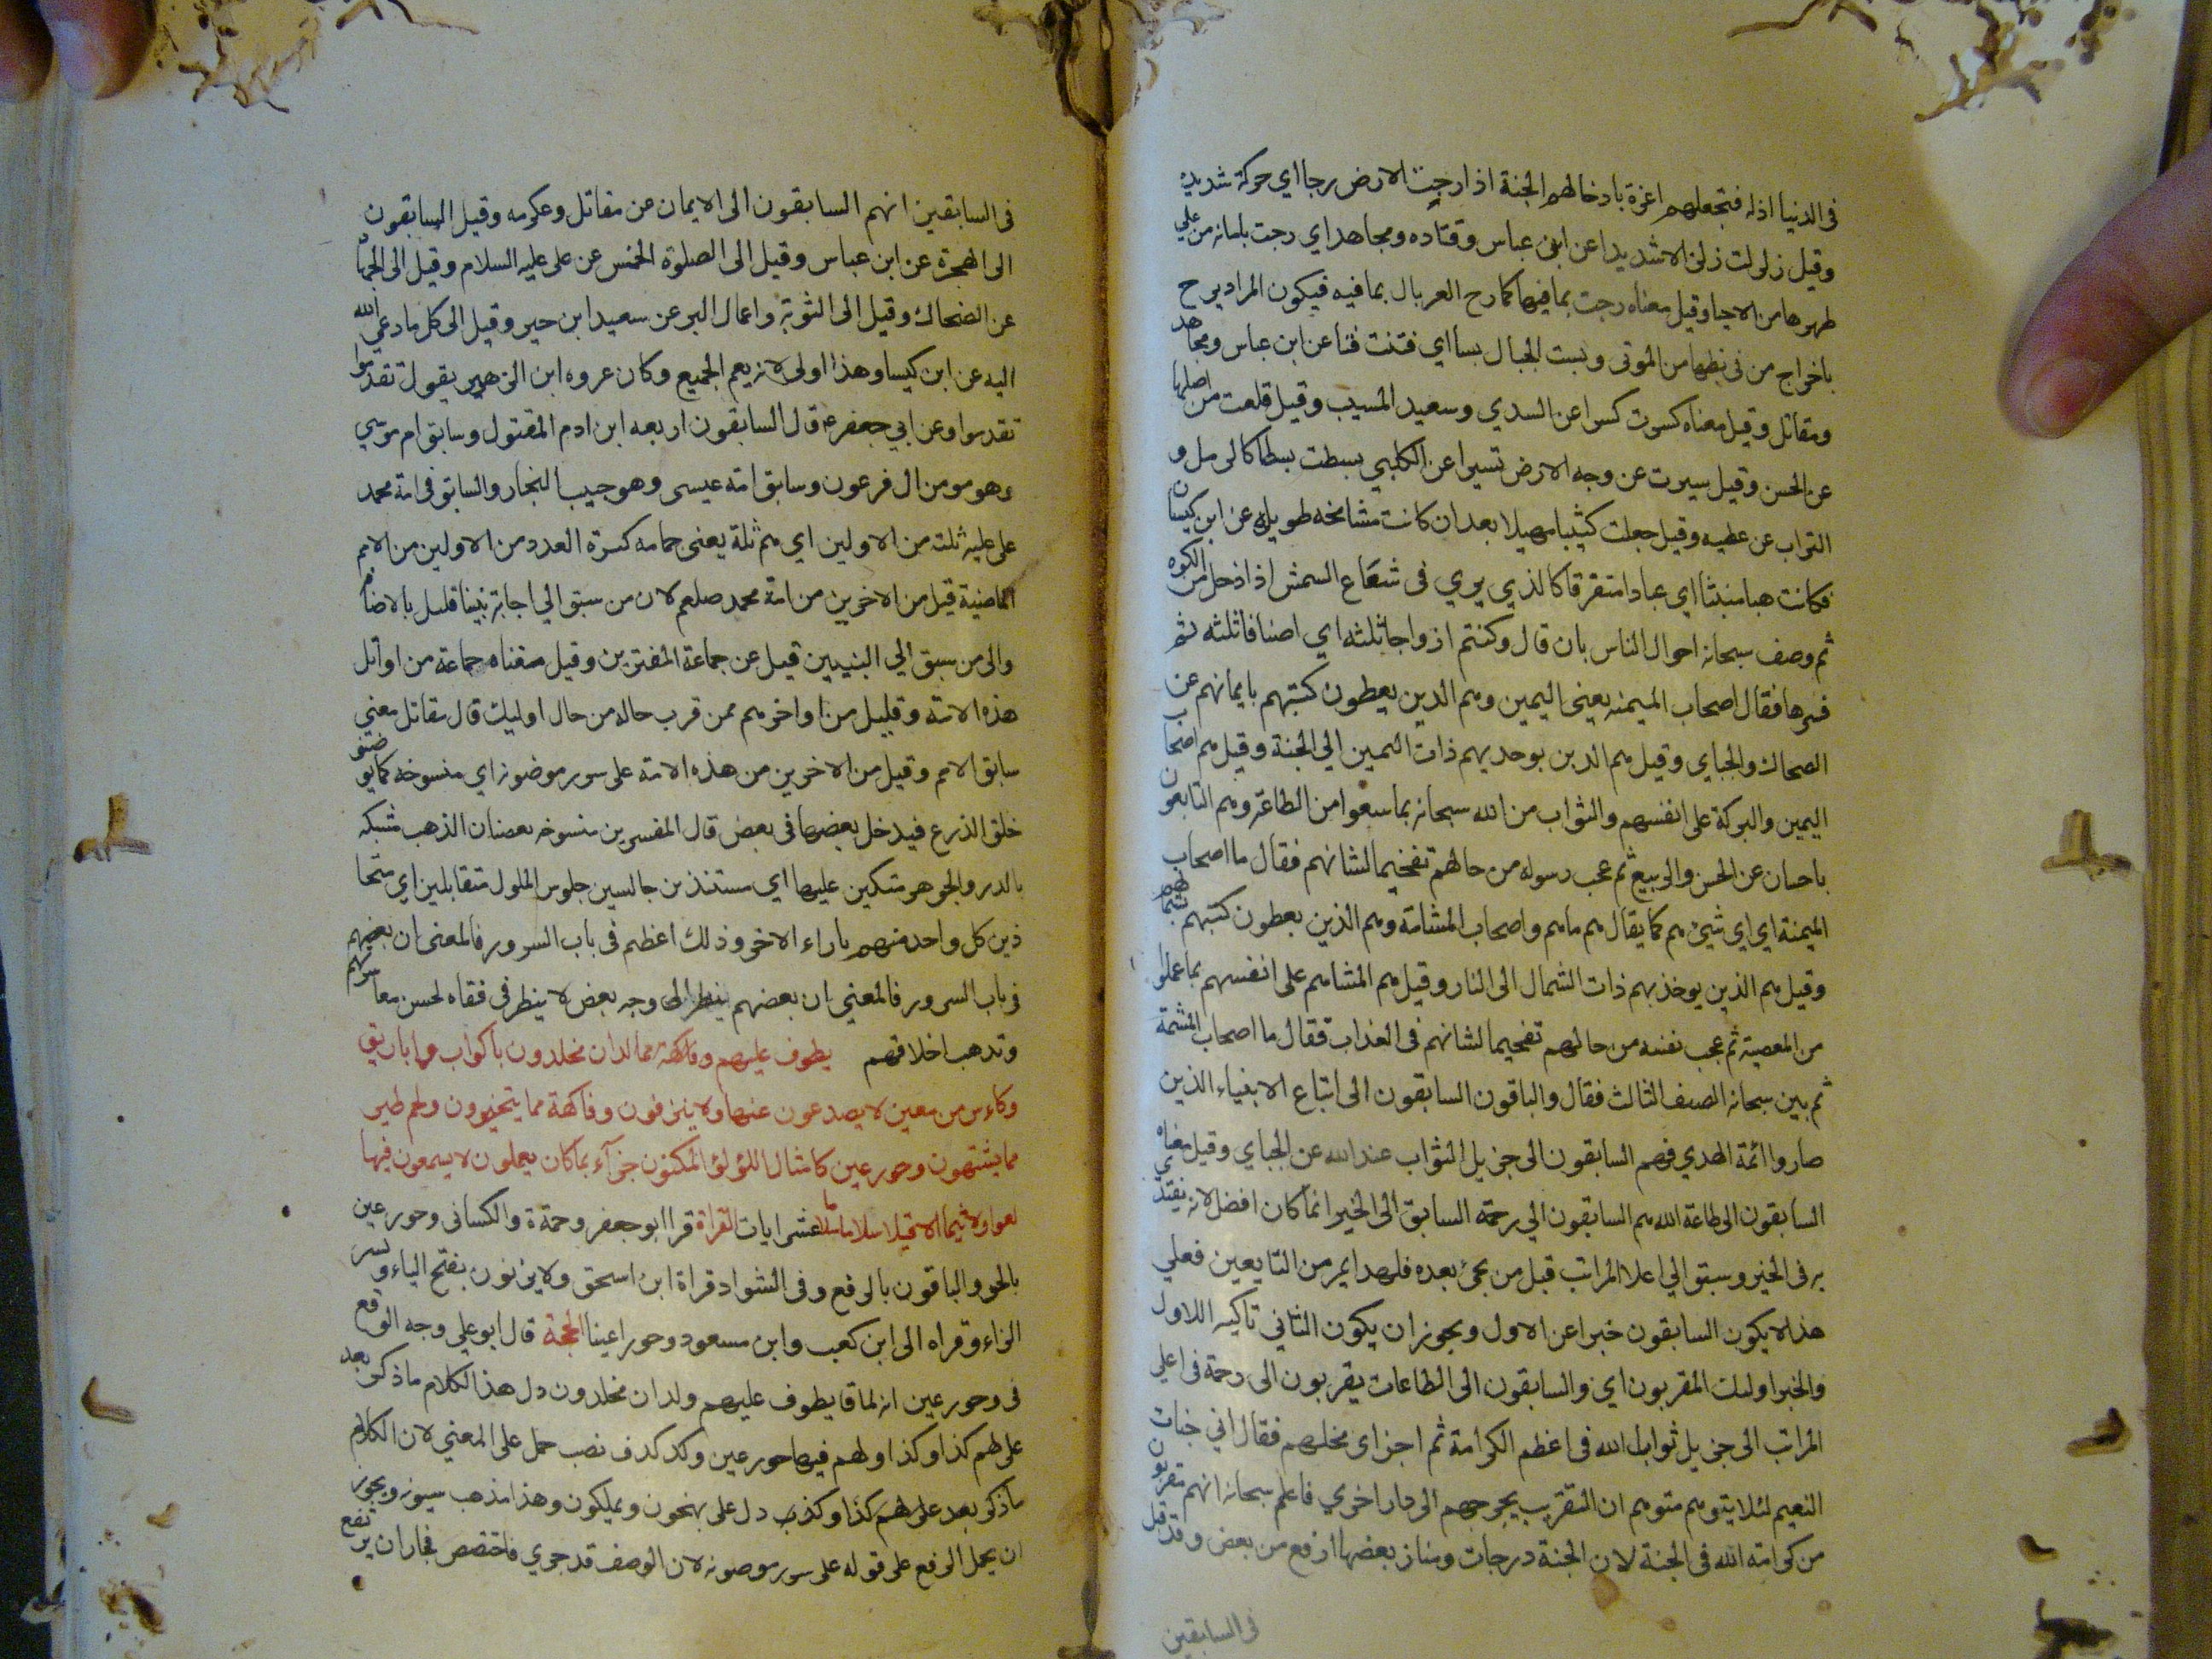 فى الدنيا اذلة فتجعلهم اعزة بادخالهم الجنة اذا رجت الارض رجا اي حركة شديدة
وقيل زلزلت زلزالا شديدا عن ابن عباس وقتاده ومجاهد اي رجت باماته من علي
ظهرها من الاحيا وقيل معناه رجت بما فيها كما رح العربال بما فيه فيكون المراد يرح
باخراج من فى بطها من الموتى وبست الجبال بسا اي فتنت فتا عن ابن عباس ومجاهد
ومقاتل وقيل معناه كسرت كسرا عن السدي وسعيد المسيب وقيل قلعت من اصلها
عن الحسن وقيل سيرت عن وجه الارض تسيرا عن الكلبي بسطت بسطا كالرمل و
التراب عن عطيه وقيل جعلت كثيبا مهيلا بعد ان كانت مشامخه طويله عن ابن كيسان
فكانت هبا منبثا اي عبادا متفرقا كالذي يري فى شعاع السمش اذا دخل من الكوه
ثم وصف سبحانه احوال الناس بان قال وكنتم ازواجا ثلثه اي اصنافا ثلثه ثم
فسرها فقال اصحاب الميمنه يعنى اليمين وهم الدين يعطون كتبهم بايمانهم عن
الصحاك والجباي وقيل هم الدين يوحد بهم ذات اليمين الي الجنة وقيل هم اصحاب
اليمين والبركة على انفسهم والثواب من الله سبحانه بما سعوا من الطاعة وهم التابعون
باحسان عن الحسن والربيع ثم عجب رسوله من حالهم تفخيما لشانهم فقال ما اصحاب
الميمنة اي اي شيئ هم كما يقال هم ما هم واصحاب المشامة وهم الذين يعطون كتبهم بشمالهم
وقيل هم الذين يوخذ بهم ذات الشمال الى النار وقيل هم المشاهم على انفسهم بما عملوا
من المعصية ثم عجب نفسه من حالهم تفخيما لشانهم فى العذاب فقال ما اصحاب المشمة
ثم بين سبحانه الصنف الثالث فقال والباقون السابقون الى اتباع الابنياء الذين
صاروا ائمة الهدي فهم السابقون الى جزيل الثواب عند الله عن الجباي وقيل معناه
السابقون الى طاعة الله هم السابقون الي رحمته السابق الى الخير انما كان افضل لانه يقتدي
به فى الخير وسبق الي اعلا المراتب قبل من يجئ بعده فلهذا يمر من التابعين فعلي
هذا لا يكون السابقون خبرا عن الاول ويجوز ان يكون الثاني تاكيد اللاول
والخبر اوليك المقربون اي والسابقون الى الطاعات يقربون الى رحمة فى اعلي
المراتب الى جزيل ثواب الله فى اعظم الكرامة ثم اجزاى محلهم فقال اني جنات
النعيم لئلا يتوهم متوهم ان التقريب يخرجهم الى دار اخري فاعلم سبحانه انهم مقربون
من كرامته الله فى الجنة لان الجنة درجات ومناز بعضها ارفع من بعض وقد قيل
فى السابقين
فى السابقين انهم السابقون الى الايمان عن مقاتل وعكرمه وقيل السابقون
الى الهجرة عن ابن عباس وقيل الى الصلوة الخمس عن على عليه السلام وقيل الى الجهاد
عن الضحاك وقيل الى التوبة واعمال البر عن سعيد ابن جبير وقيل الى كل ما دعى الله
اليه عن ابن كيسا وهذا اولى لانه يعم الجميع وكان عروه ابن الزهير يقول تقدموا
تقدموا وعن ابي جعفر ع قال السابقون اربعه ابن ادم المقتول وسابق ام موسي
وهو مومن ال فرعون وسابق امة عيسى وهو حبيب النجار والسابق فى امة محمد
على عليه ثلت من الاولين اي هم ثلة يعنى جمامه كسرة العدد من الاولين من الامم
الماضية قيل من الاخرين من امة محمد صلعم لان من سبق الي اجابة نبينا قليل بالاضافه
والى من سبق الي النبيين قيل عن جماعة المفترين وقيل معناه جماعة من اوائل
هذه الامة وقليل من اواخرهم ممن قرب حاله من حال اوليك قال مقاتل معنى
سابق الامم وقيل من الاخرين من هذه الامة على سور موضونة اي منسوخه كما يوضتو
خلق الذرع فيدخل بعضها فى بعض قال المفسرين منسوخه بعضان الذهب مشبكه
بالدر والجوهر متكين عليها اي مستندين جالسين جلوس الملول متقابلين اي متحا
ذين كل واحد منهم باراء الاخر وذلك اعظم فى باب السرور فالمعنى ان بعضهم
فى باب السرور فالمعني ان بعضهم ينظر الى وجه بعض لا ينظر فى فقاه لحسن معاشرتهم
وتدهب اخلاقهم يطوف عليهم وفاكهة مما لدان مخلدون باكواب واباريق
وكاءس من معين لا يصدعون عنها ولا ينزفون وفاكهة مما يتخيرون ولحم طير
مما يشتهون وحور عين كامثال اللؤلؤ المكنون جزآء بما كان يعملون لا يسمعون فيها
لغوا ولا تيما الا قيلا سلاما سلاما عشر ايات القراة قرا ابو جعفر وحمزة والكسانى وحور عين
بالحر والباقون بالرفع وفى الشواد قراة ابن اسحق ولا ينزفون بفتح الياء وكسر
الزاء وقراه الى ابن كعب وابن مسعود وحورا عينا الحجة قال ابو علي وجه الرفع
فى وحور عين انه لما قا يطوف عليهم ولدان مخلدون دل هذا الكلام ما ذكر بعد
على لهم كذا وكذا ولهم فيها حور عين وكد كدف نصب حمل على المعني لان الكلام
ماذكر بعد على لهم كذا وكذب دل على بهنحون ويملكون وهذا مذهب سيبويه ويجوز
ان يحمل الرفع على قوله على سور موصونه لان الوصف قد جري فاختصص فجاز ان يرتفع